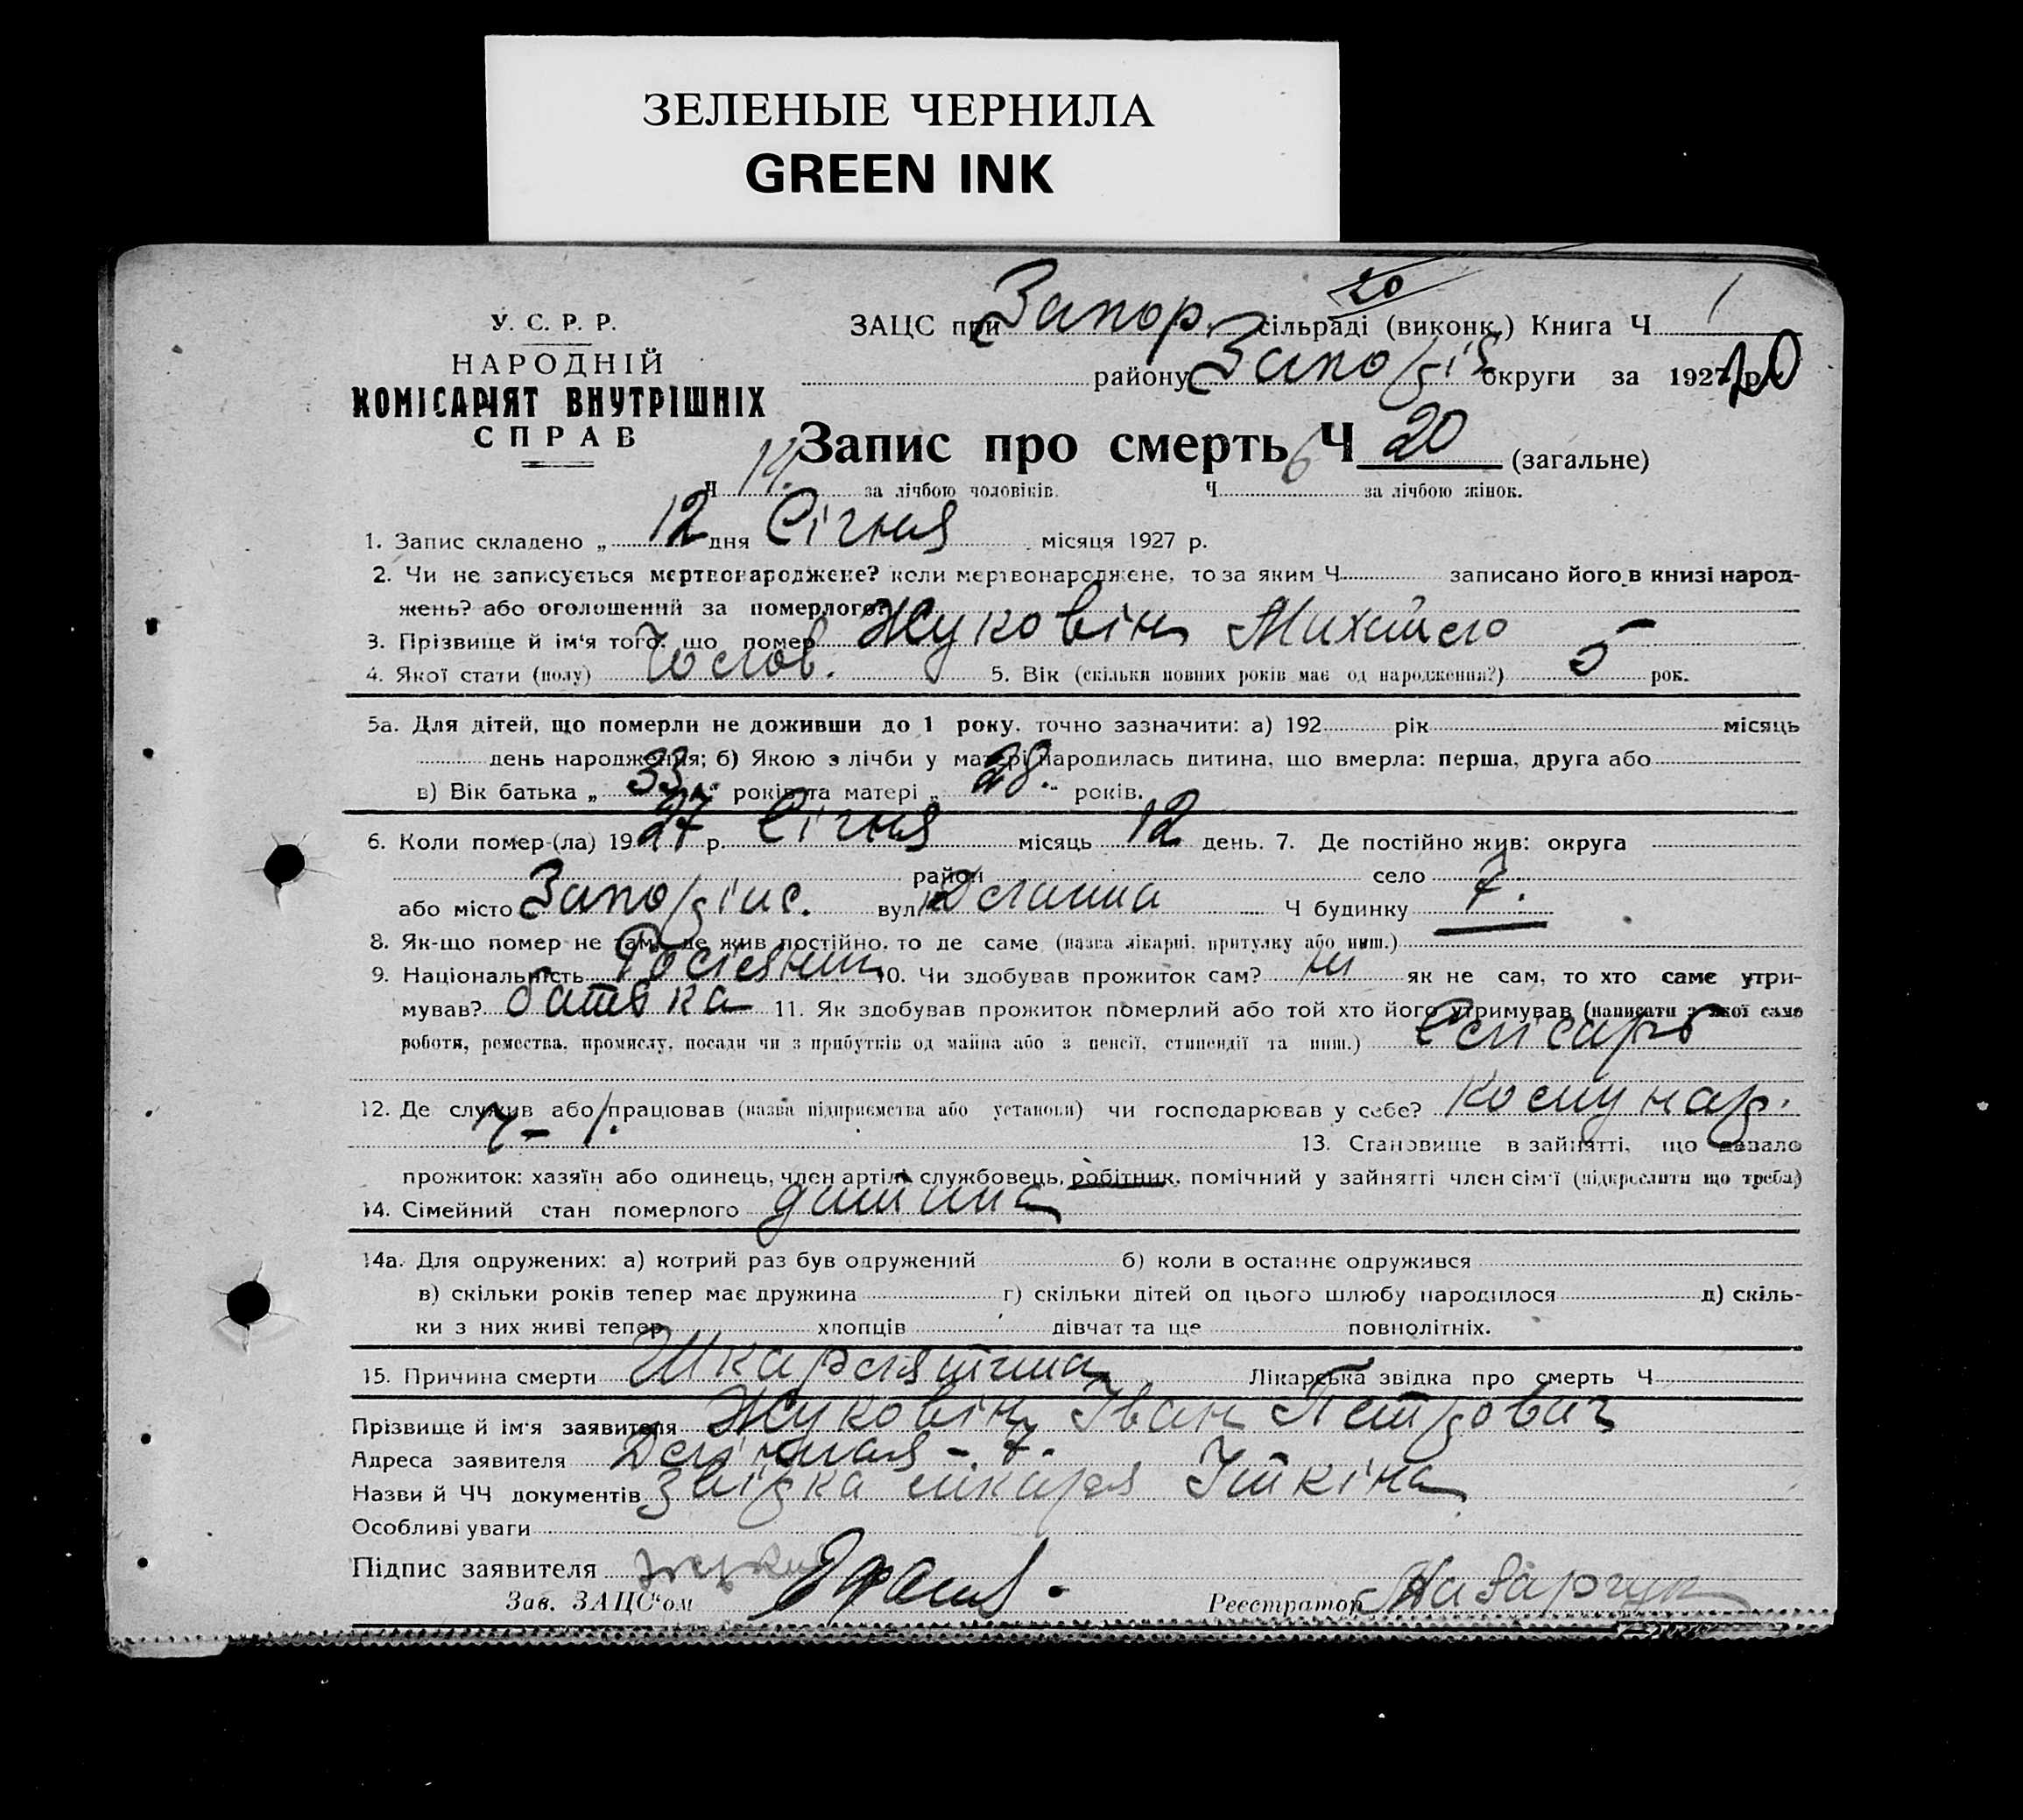 ЗЕЛЕНЫЕ ЧЕРНИЛА
GREEN INK
20
У. С. Р. Р.
НАРОДНІЙ
КОМІСАРІЯТ ВНУТРІШНІХ
СПРАВ
ЗАЦС при Запор. сільраді (виконк.) Книга Ч 1
району Запоріз округи за 1927 р. 20
Запис про смерть Ч 20 (загальне)
Ч 14. за лічбою чоловіків. Ч 6 за лічбою жінок.
1. Запис складено „ 12 дня Січня місяця 1927 р.
2. Чи не записується мертвонароджене? коли мертвонароджене, то за яким Ч записано його в книзі народ-
жень? або оголошений за померлого?
3. Прізвище й ім'я того, що помер Жуковін Михайло
4. Якої стати (полу) Чолов. 5. Вік (скільки повних років має од народження?) 5 рок.
5а. Для дітей, що померли не доживши до 1 року, точно зазначити: а) 192 рік місяць
день народження; б) Якою з лічби у матері народилась дитина, що вмерла: перша, друга або
в) Вік батька „ 33 " років та матері „ 28. " років.
6. Коли помер-(ла) 1927 р. Січня місяць 12 день. 7. Де постійно жив: округа
район село
або місто Запоріжс. вул. Ч будинку 7.
8. Як-що помер не там, де жив постійно, то де саме (назва лікарні, притулку або инш.)
9. Національність Росіянин 10. Чи здобував прожиток сам? ні як не сам, то хто саме утри-
мував? батька 11. Як здобував прожиток померлий або той хто його утримував (написати з якої саме
роботи, ремества, промислу, посади чи з прибутків од майна або з пенсії, стипендії та инш.) Слісарь
12. Де служив або працював (назва підприємства або установи) чи господарював у себе? Комунар.
13. Становище в зайнятті, що давало
прожиток: хазяїн або одинець, член артілі, службовець, робітник, помічний у зайнятті член сім'ї (підкреслити що треба)
14. Сімейний стан померлого дитина
14а. Для одружених: а) котрий раз був одружений б) коли в останнє одружився
в) скільки років тепер має дружина г) скільки дітей од цього шлюбу народилося д) скіль-
ки з них живі тепер хлопців дівчат та ще повнолітніх.
15. Причина смерти Шкарлятина Лікарська звідка про смерть Ч
Прізвище й ім'я заявителя Жуковін Іван Петрович
Адреса заявителя - 7.
Назви й ЧЧ документів звідка лікаря Іткіна
Особливі уваги
Підпис заявителя
Зав. ЗАЦС'ом
Реєстратор Назарчук